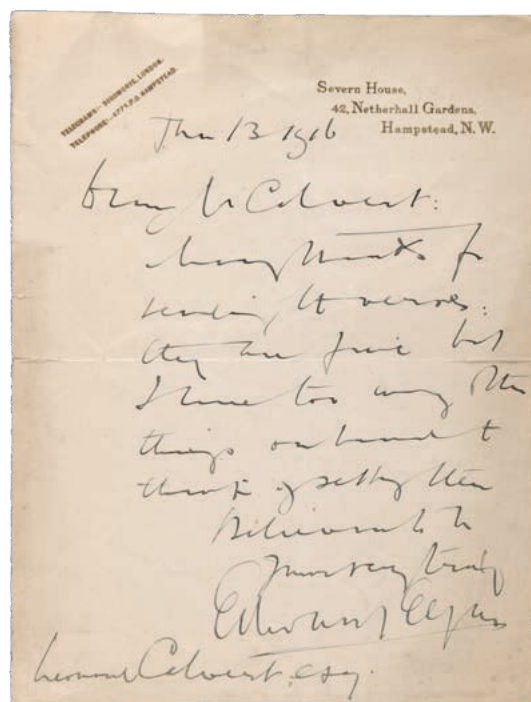 TELEGRAMS:- LONDON.
TELEPHONE:- HAMPSTEAD.
Severn House,
42, Netherhall Gardens,
Hampstead, N.W.
Jan 13 1916
Dear Mr Calvert:
Many thanks for
sending the verses:
they are fine but
I have too many other
things on hand to
think of setting them
Believe me to be
Yours very truly
Edward Elgar
Leonard Calvert, esq.